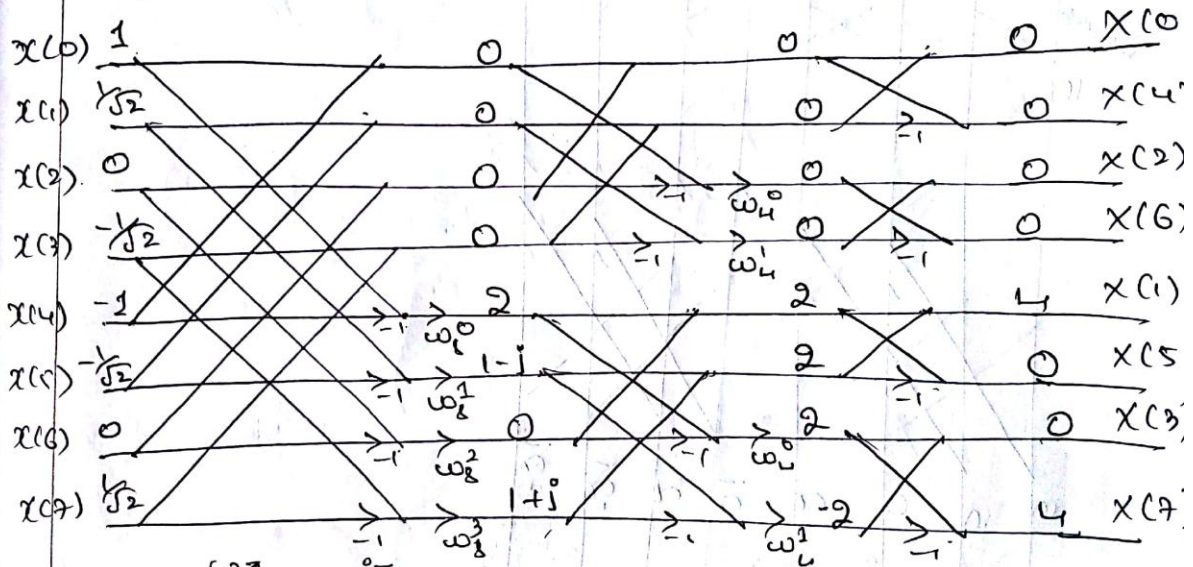 x(0) 1 0 0 0 X(0
x(1) 1/√2 0 0 -1 0 X(4)
x(2) 0 0 -1 ω₄⁰ 0 0 X(2)
x(3) -1/√2 0 -1 ω₄¹ 0 -1 0 X(6)
x(4) -1 -1 ω₈⁰ 2 2 4 X(1)
x(5) -1/√2 -1 ω₈¹ 1-j 2 -1 0 X(5
x(6) 0 -1 ω₈² 0 -1 ω₄⁰ 2 0 X(3)
x(7) 1/√2 -1 ω₈³ 1+j -1 ω₄¹ -2 -1 4 X(7)